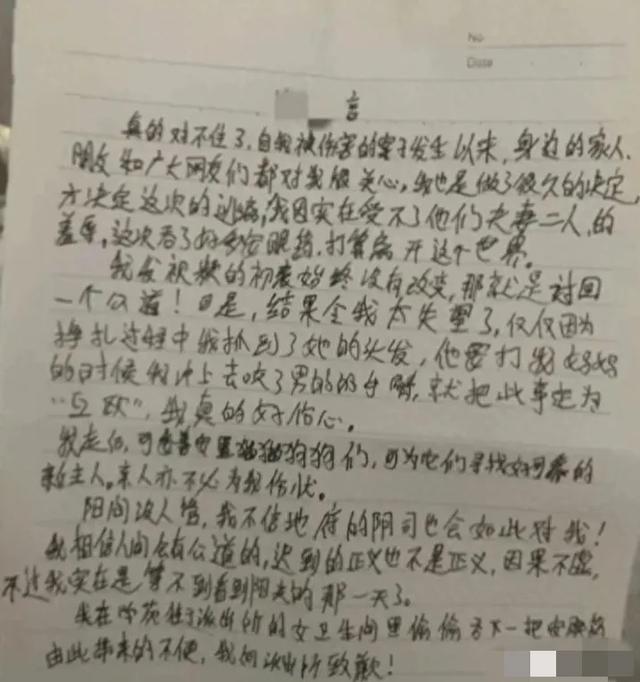 No
Date
言
真的对不住了,自我被伤害的案子发生以来,身边的家人、
朋友和广大网友们都对我很关心,我也是做了很久的决定,
方决定这次的逃离,我因实在受不了他们夫妻二人的
羞辱,这次吞了好多安眠药,打算离开这个世界。
我发视频的初衷始终没有改变,那就是讨回
一个公道!但是,结果令我太失望了,仅仅因为
挣扎过程中我抓到了她的头发,他要打我妈妈
的时候我冲上去咬了男的的手臂,就把此事定为
“互殴”,我真的好伤心。
我走后,可 善安置猫猫狗狗们,可为它们寻找好可靠的
新主人。亲人亦不必为我伤忧。
阳间没人管,我不信地府的阴司也会如此对我!
我相信人间会有公道的,迟到的正义也不是正义,因果不虚,
不过我实在是等不到看到阳光的那一天了。
我在 派出所的女卫生间里偷偷吞下一把安眠药
由此带来的不便,我向派出所致歉!